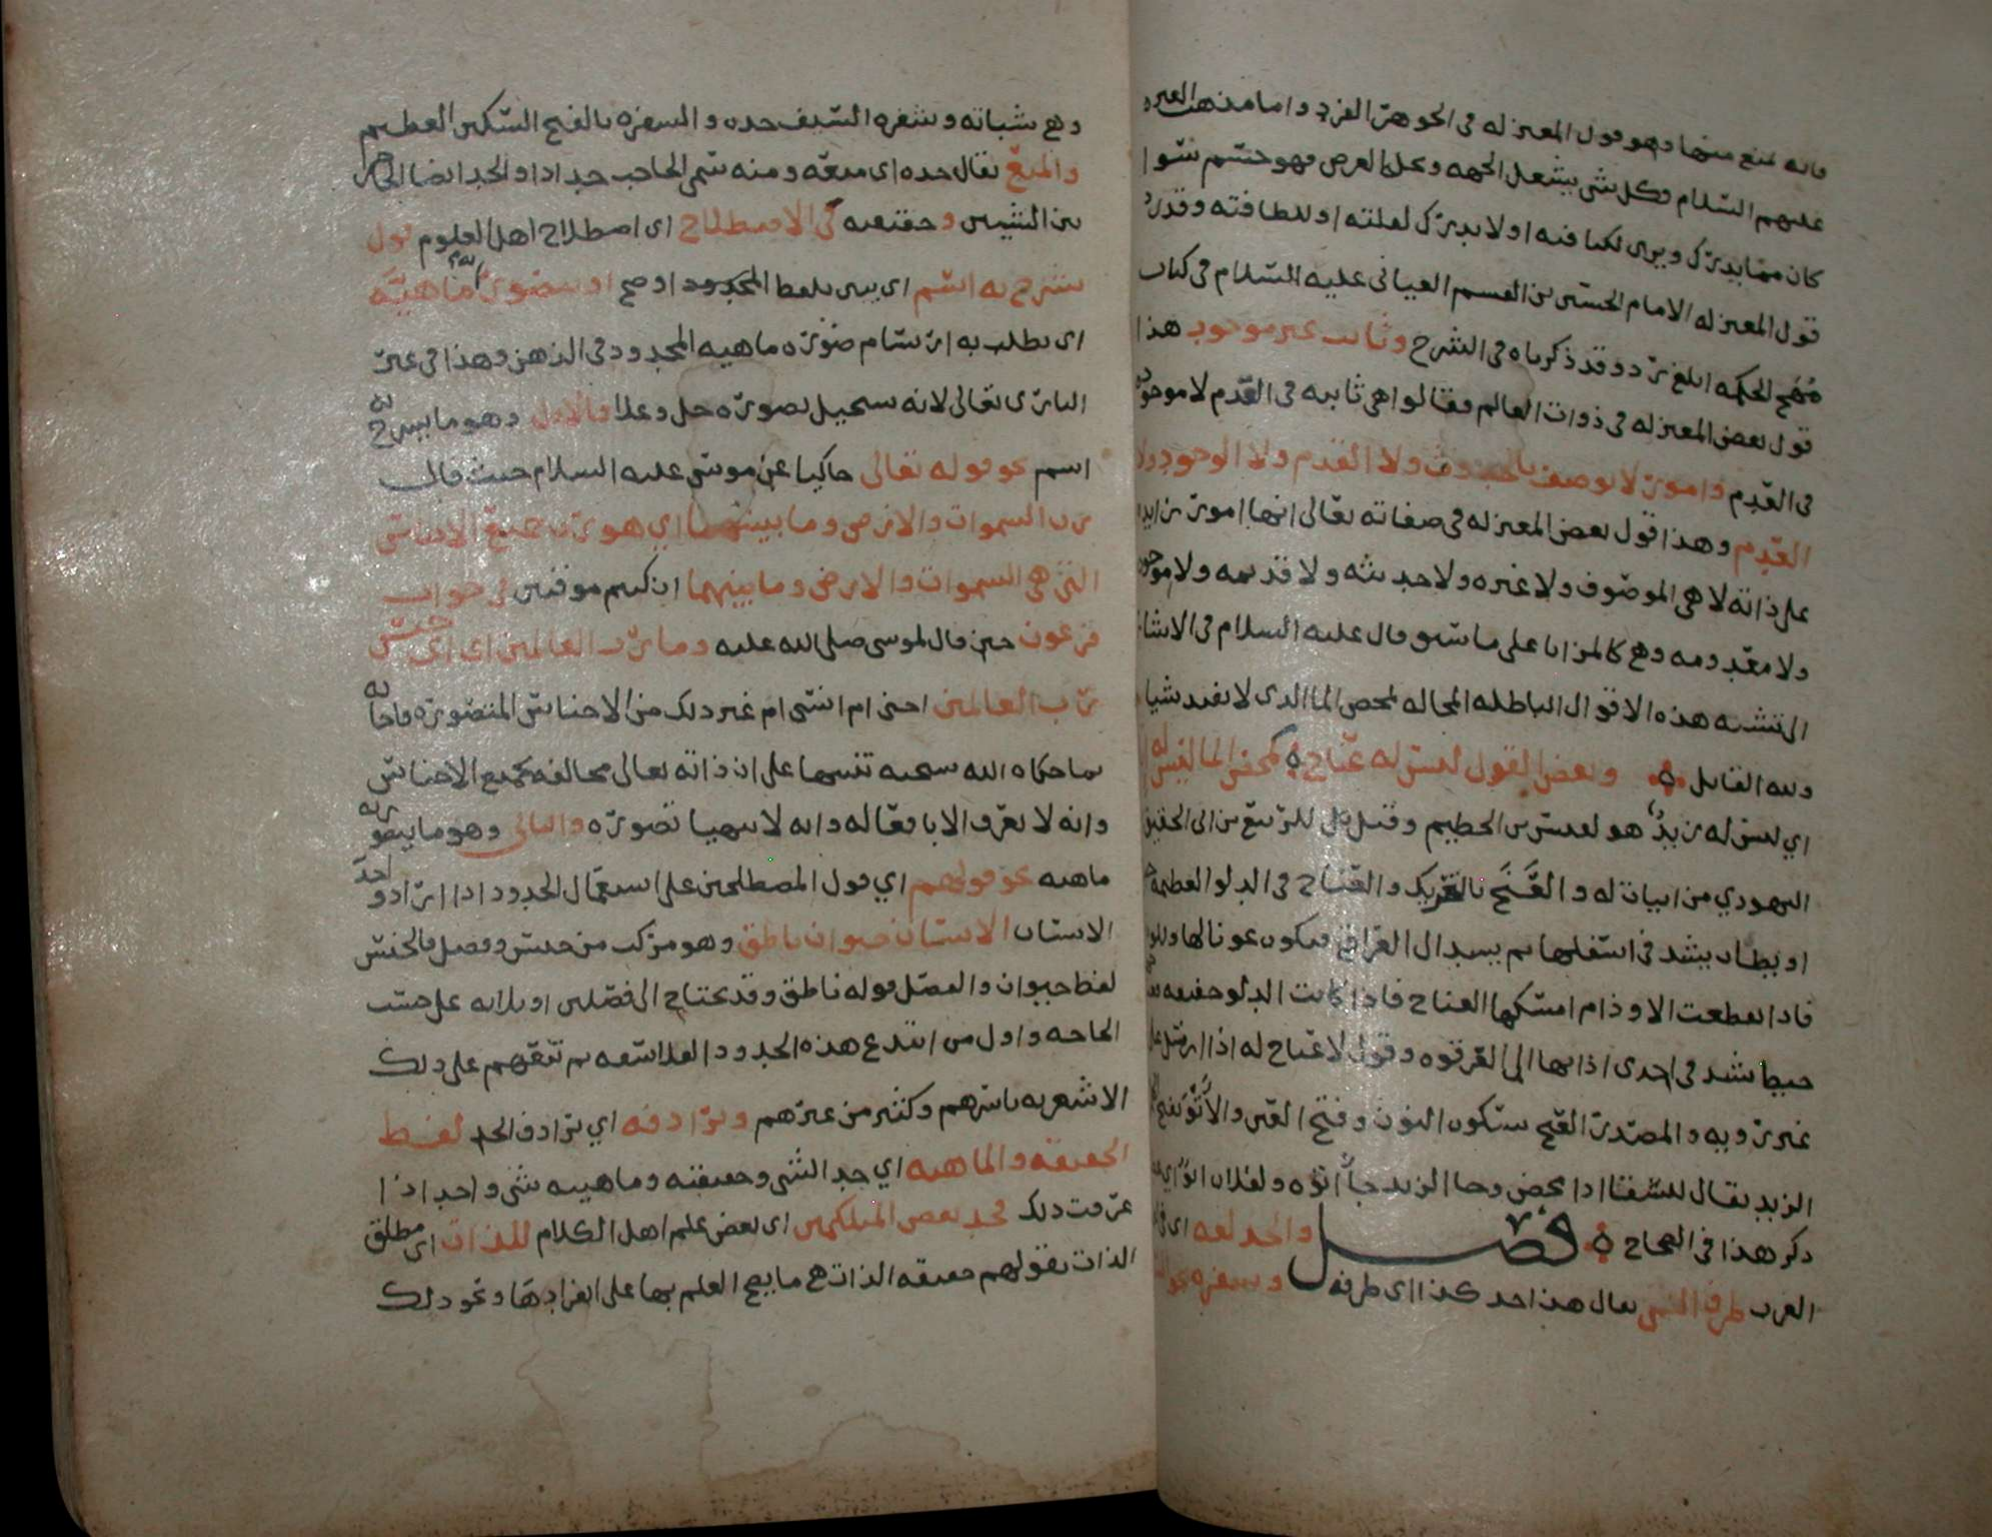 فانه تمنع منها وهو قول المعتزله في الجوهر الفرد واما مذهب العتره
عليهم السلام فكل شي يشغل الجهه وتحله العرض فهو جسم سوا
كان مما يدرك ويرى لكثافته او لا يدرك لقلته او للطافته وقد رد
قول المعتزله الامام الحسين بن القسم العياني عليه السلام في كتاب
مهج الحكمه ابلغ رد وقد ذكرناه في الشرح وثابت غير موجود هذا
قول بعض المعتزله في ذوات العالم فقالوا هي ثابته في القدم لا موجوده
في القدم وامور لا توصف بالحدوث ولا القدم ولا الوجود ولا
العدم وهذا قول بعض المعتزله في صفاته تعالى انها امور زايده
على ذاته لا هي الموصوف ولا غيره ولا حديثه ولا قديمه ولا موجوده
ولا معدومه وهي كالمزايا على ما سبق قال عليه السلام في الاشاره
الى تشبيه هذه الاقوال الباطله المحاله بمحض الما الذي لا يفيد شيا
ولله القايل وبعض القول ليس له عناج كمحض الما ليس له
اي ليس له زبد هو لعيس بن الحطيم وقيل بل للربيع بن ابي الحقيق
اليهودي من ابيات له والعنج بالتحريك والعناج في الدلو العظيمه
او بطان يشد في اسفلها ثم يشد الى العراقي فيكون عونا لها وللوذم
فاذا انقطعت الاوذام امسكها العناج فاذا كانت الدلو خفيفه
خيط يشد في احدى اذانها الى العرقوه وقول لا عناج له اذا ارسل على
غير رويه والمصدر العنج بسكون النون وفتح العين والأتو
الزبد يقال للسقا اذا مخض وجا الزبد جا اتوه ولفلان اتو اي
ذكر هذا في الصحاح فصل والحد لغه اي في
العرب طرف الشي يقال هذا حد كذا اي طرفه وشفره نحو
وهي شباته وشفره السيف حده والشفره بالفتح السكين العظيم
والمنع يقال حده اي منعه ومنه سمي الحاجب حدادا والحد ايضا الحاجز
بين الشيين وحقيقته في الاصطلاح اي اصطلاح اهل العلوم قول
يشرح به اسم اي يبين بلفظ المحدود اوضح او تصور به ماهيه
اي يطلب به ارتسام صوره ماهيه المحدود في الذهن وهذا في غير
الباري تعالى لانه يستحيل تصوره جل وعلا فالاول وهو ما يشرح به
اسم نحو قوله تعالى حاكيا عن موسى عليه السلام حيث قال
رب السموات والارض وما بينهما اي هو رب جميع الاجناس
التي هي السموات والارض وما بينهما ان كنتم موقنين في جواب
فرعون حين قال لموسى صلى الله عليه وما رب العالمين اي اي جنس
رب العالمين اجني ام انسي ام غير ذلك من الاجناس المتصوره فاجابه
بما حكاه الله سبحنه تنبيها على ان ذاته تعالى مخالفه لجميع الاجناس
وانه لا يعرف الا بافعاله وانه لا يتهيا تصوره والثاني وهو ما يتصور به
ماهيه نحو قولهم اي قول المصطلحين على استعمال الحدود اذا ارادوا حد
الانسان الانسان حيوان ناطق وهو مركب من جنس وفصل فالجنس
لفظ حيوان والفصل قوله ناطق وقد يحتاج الى فصلين او ثلاثه على حسب
الحاجه واول من ابتدع هذه الحدود الفلاسفه ثم تبعهم على ذلك
الاشعريه باسرهم وكثير من غيرهم ويرادفه اي يرادف الحد لفظ
الحقيقه والماهيه اي حد الشي وحقيقته وماهيته شي واحد اذا
عرفت ذلك فحد بعض المتكلمين اي بعض علم اهل الكلام للذات اي مطلق
الذات بقولهم حقيقه الذات هي ما يصح العلم بها على انفرادها ونحو ذلك